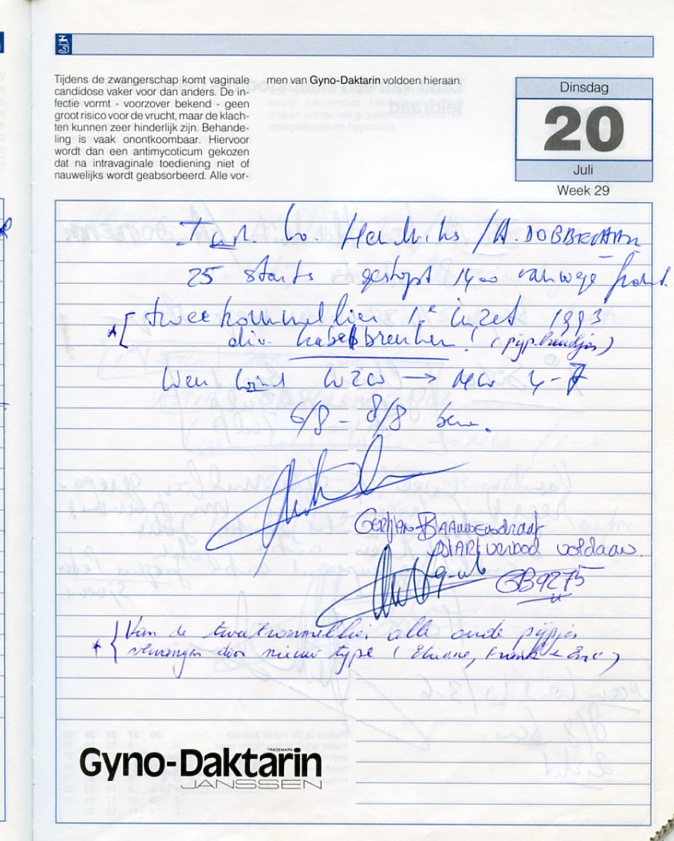 Tijdens de zwangerschap komt vaginale
candidose vaker voor dan anders. De in-
fectie vormt - voorzover bekend - geen
groot risico voor de vrucht, maar de klach-
ten kunnen zeer hinderlijk zijn. Behande-
ling is vaak onontkoombaar. Hiervoor
wordt dan een antimycoticum gekozen
dat na intravaginale toediening niet of
nauwelijks wordt geabsorbeerd. Alle vor-
men van Gyno-Daktarin voldoen hieraan.
Dinsdag
20
Juli
Week 29
Hendriks / A. DOBBELAAR
25 starts gestopt 1400 vanwege front.
* [ tweetrommellier 1e inzet 1993
div. kabelbreuken! (pijp.
wind WZW → NW 4-7
6/8 - 8/8
Gertjan BAAUWENSdraaf
START verbod voldaan.
GB9275
* { Van de tweetrommellier alle oude pijpjes
vervangen door nieuw type (Etienne, Frank + Eric)
TRADEMARK
Gyno-Daktarin
JANSSEN